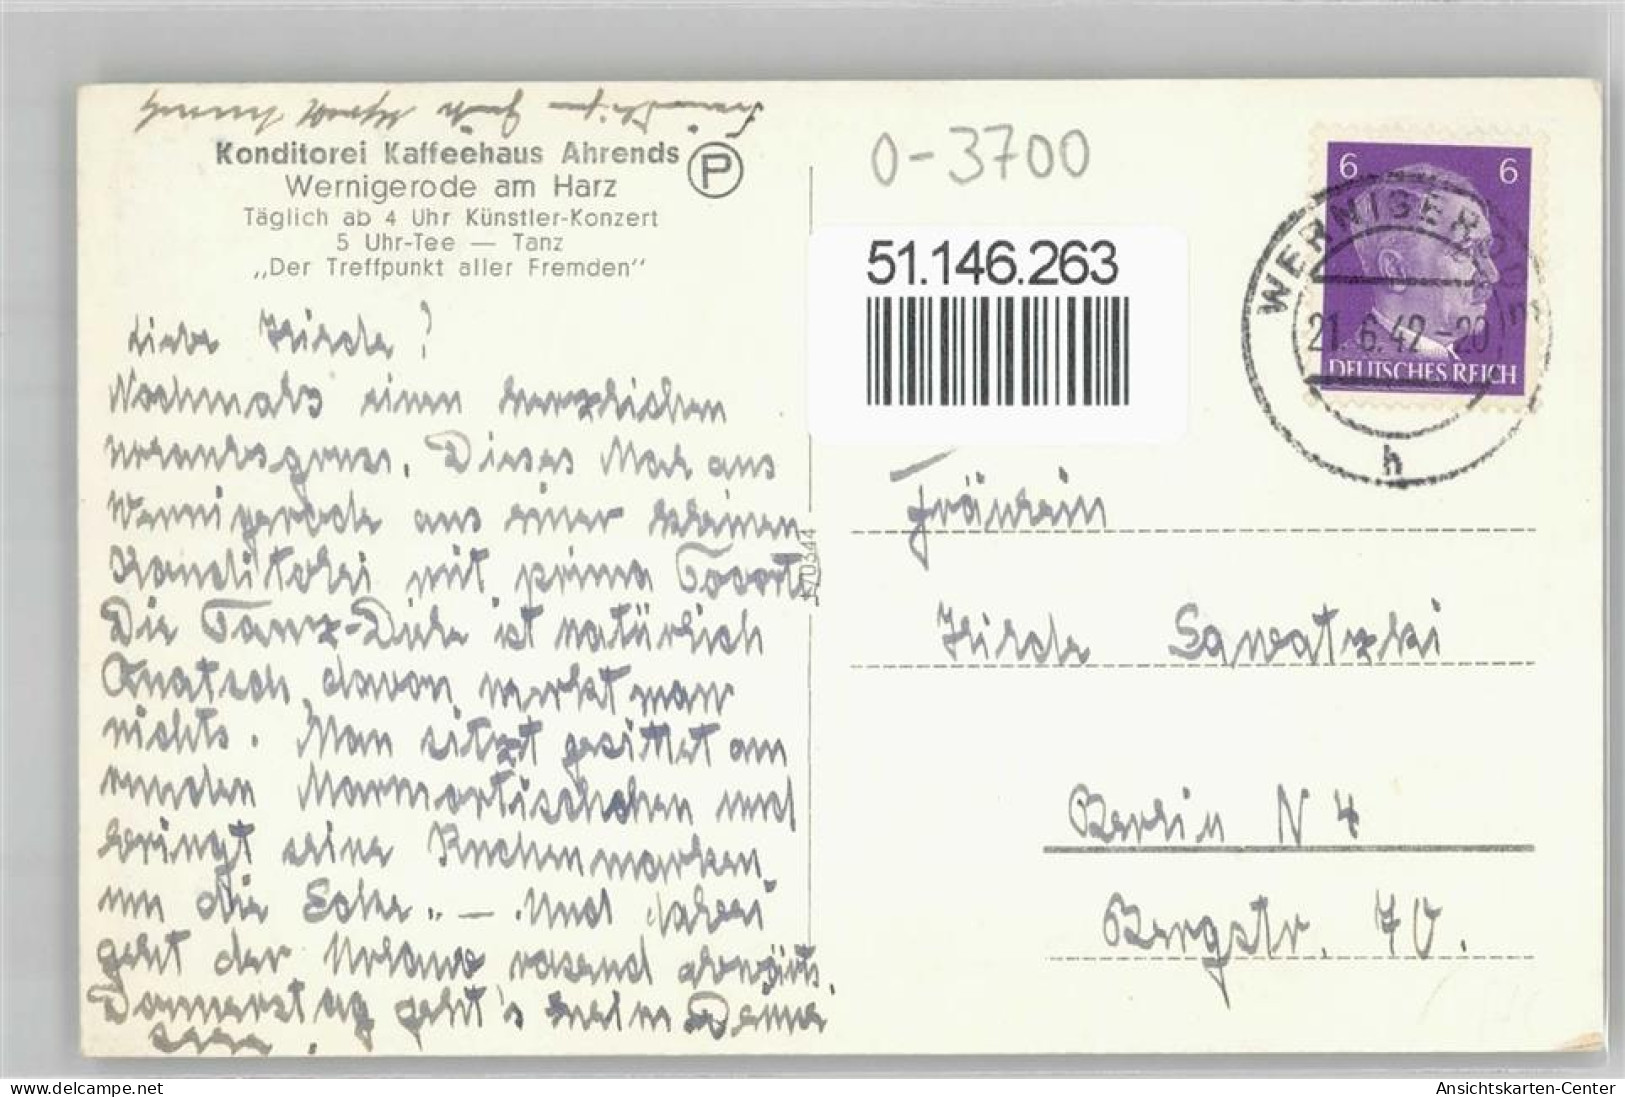 Konditorei Kaffeehaus Ahrends
P
Wernigerode am Harz
Täglich ab 4 Uhr Künstler-Konzert
5 Uhr-Tee — Tanz
„Der Treffpunkt aller Fremden"
Liebe Hilde!
Nochmals einen herzlichen
Urlaubsgruss. Dieses Mal aus
Wernigerode aus einer kleinen
Konditorei mit prima
Die Tanz-Diele ist natürlich
Quatsch, davon merkt man
nichts. Man sitzt gesittet am
runden Marmortischchen und
bringt seine Kuchenmarken
um die Ecke. — Und dabei
geht der Urlaub rasend abwärts.
Donnerstag geht's heim Deine
0-3700
51.146.263
6 6
DEUTSCHES REICH
WERNIGERODE
21.6.42.-20
h
Fräulein
Hilde Sawatzki
Berlin N 4
Bergstr. 70.
Ansichtskarten-Center
https://www.delcampe.net